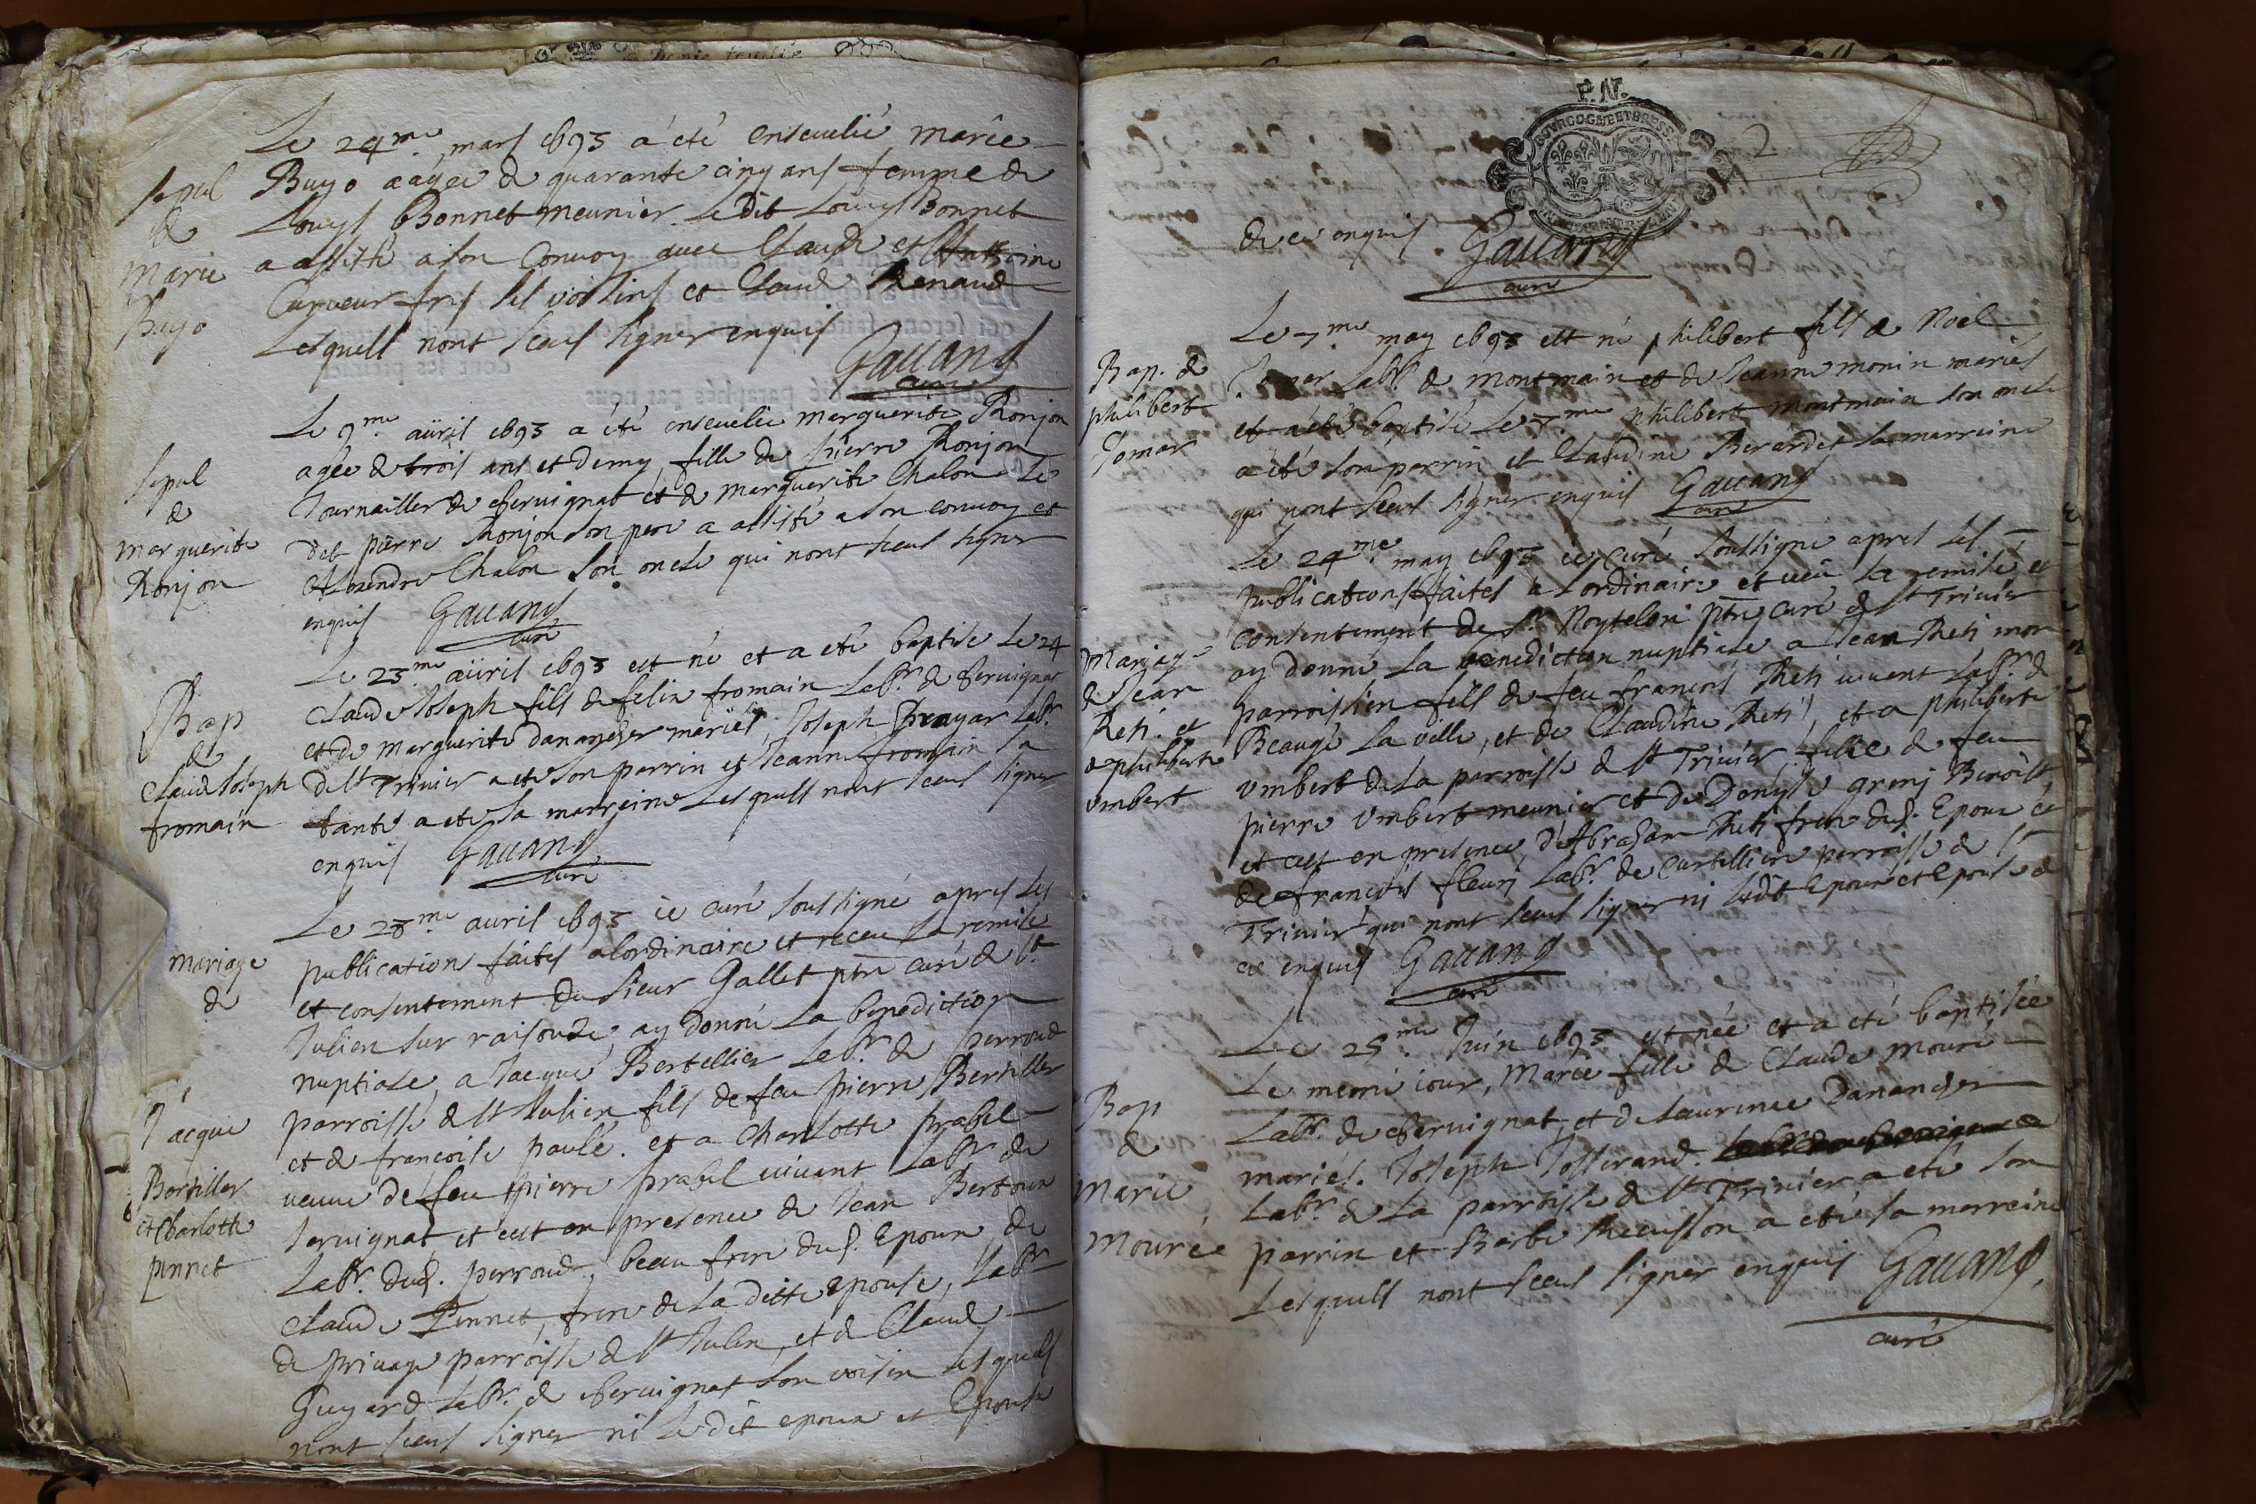 Le 24me mars 1693 a été enseuelie marie
Buyo aagée de quarante cinq ans femme de
Louys Bonnet meunier le dit Louys Bonnet
a assisté a son Convoy avec Claude et Anthoine
frs ses voisins et Claude Renaud
Lesquels nont sceus signer enquis
Gauand
curé
sepul
de
Marie
Buyo
Le 9me auril 1693 a été enseuelie marguerite Ronjon
agée de trois ans et demy, fille de pierre Ronjon
Journaillier de cheruignat et de marguerite Chalon Le
dit pierre Ronjon son pere a assisté a son convoy et
Chalon son oncle qui nont sceus signer
enquis Gauand
curé
sepul
de
marguerite
Ronjon
Le 23me auril 1693 est né et a été baptisé le 24
Claude Joseph fils de felix fromain Labr. de seruignat
et de marguerite danancher mariés, Joseph Labr
de st Triuier a eté son parrin et Jeanne fromain sa
tante a eté sa marreine Lesquels nont sceus signer
enquis Gauand
curé
Bap
de
Claude Joseph
fromain
Le 28me auril 1693 ie curé soussigné apres les
publication faites a lordinaire et receu la remise
et consentement du sieur Gallet ptre curé de st
Julien sur raisouse, ay donné La benediction
nuptiale, a Jacque Bertellier Labr. de perroud
parroisse de st Julien fils de feu pierre Bertiller
et de francoise paule. et a Charlotte prabel
veuue de feu pierre prabel viuant Labr. de
seruignat et cest en presence de Jean Bertoux
Labr. dud. perroud, beau frere dud. Epoux de
Claude Pennet, frere de La ditte epouse, Labr
de priuage parroisse de st Julien, et de Claude
Guyard Labr. de cheruignat son voisin Lesquels
nont sceus signer ni Le dit epoux et Epouse
mariage
de
Jacque
Bertiller
et Charlotte
pennet
P. N.
BOVRGOGNE ET BRESSE
2
de ce enquis Gauand
curé
Le 7me may 1693 est né philibert fils de Noel
Labr de montmain et de Jeanne monin mariés
et a été baptisé Le 7me philibert montmain son oncle
a été son parrin et Claudine Berardet sa marreine
qui nont sceus signer enquis Gauand
curé
Bap. de
philibert
Le 24me may 1693 ie curé soussigné apres les
publications faites a Lordinaire et ueu La remise et
consentement de Sr ptre curé de st Triuier
ay donné La benediction nuptiale a Jean Reti mon
parroissien fils de feu francois Reti viuant Labr. de
Beaugé La ville, et de Claudine Reti, et a philiberte
vmbert de La parroisse de st Triuier, fille de feu
pierre vmbert meunier et de Denyse Benoist
et cest en presence, d'Abraham Reti frere dud. Epoux et
de francois fleury Labr. de Curtillier parroisse de st
Triuier qui nont sceus signer ni Ledit Epoux et Epouse de
ce enquis Gauand
curé
Mariage
de Jean
Reti. et
philiberte
vmbert
Le 25me Juin 1693 est née et a été baptisée
Le meme iour, Marie fille de Claude mouré
Labr. de cheruignat, et de Laurence Dananchen
mariés. Joseph Josserand.
Labr. de La parroisse de st Triuier a eté son
parrin et Barbe a eté sa marreine
Lesquels nont sceus signer enquis Gauand,
curé
Bap
de
Marie
Mourée